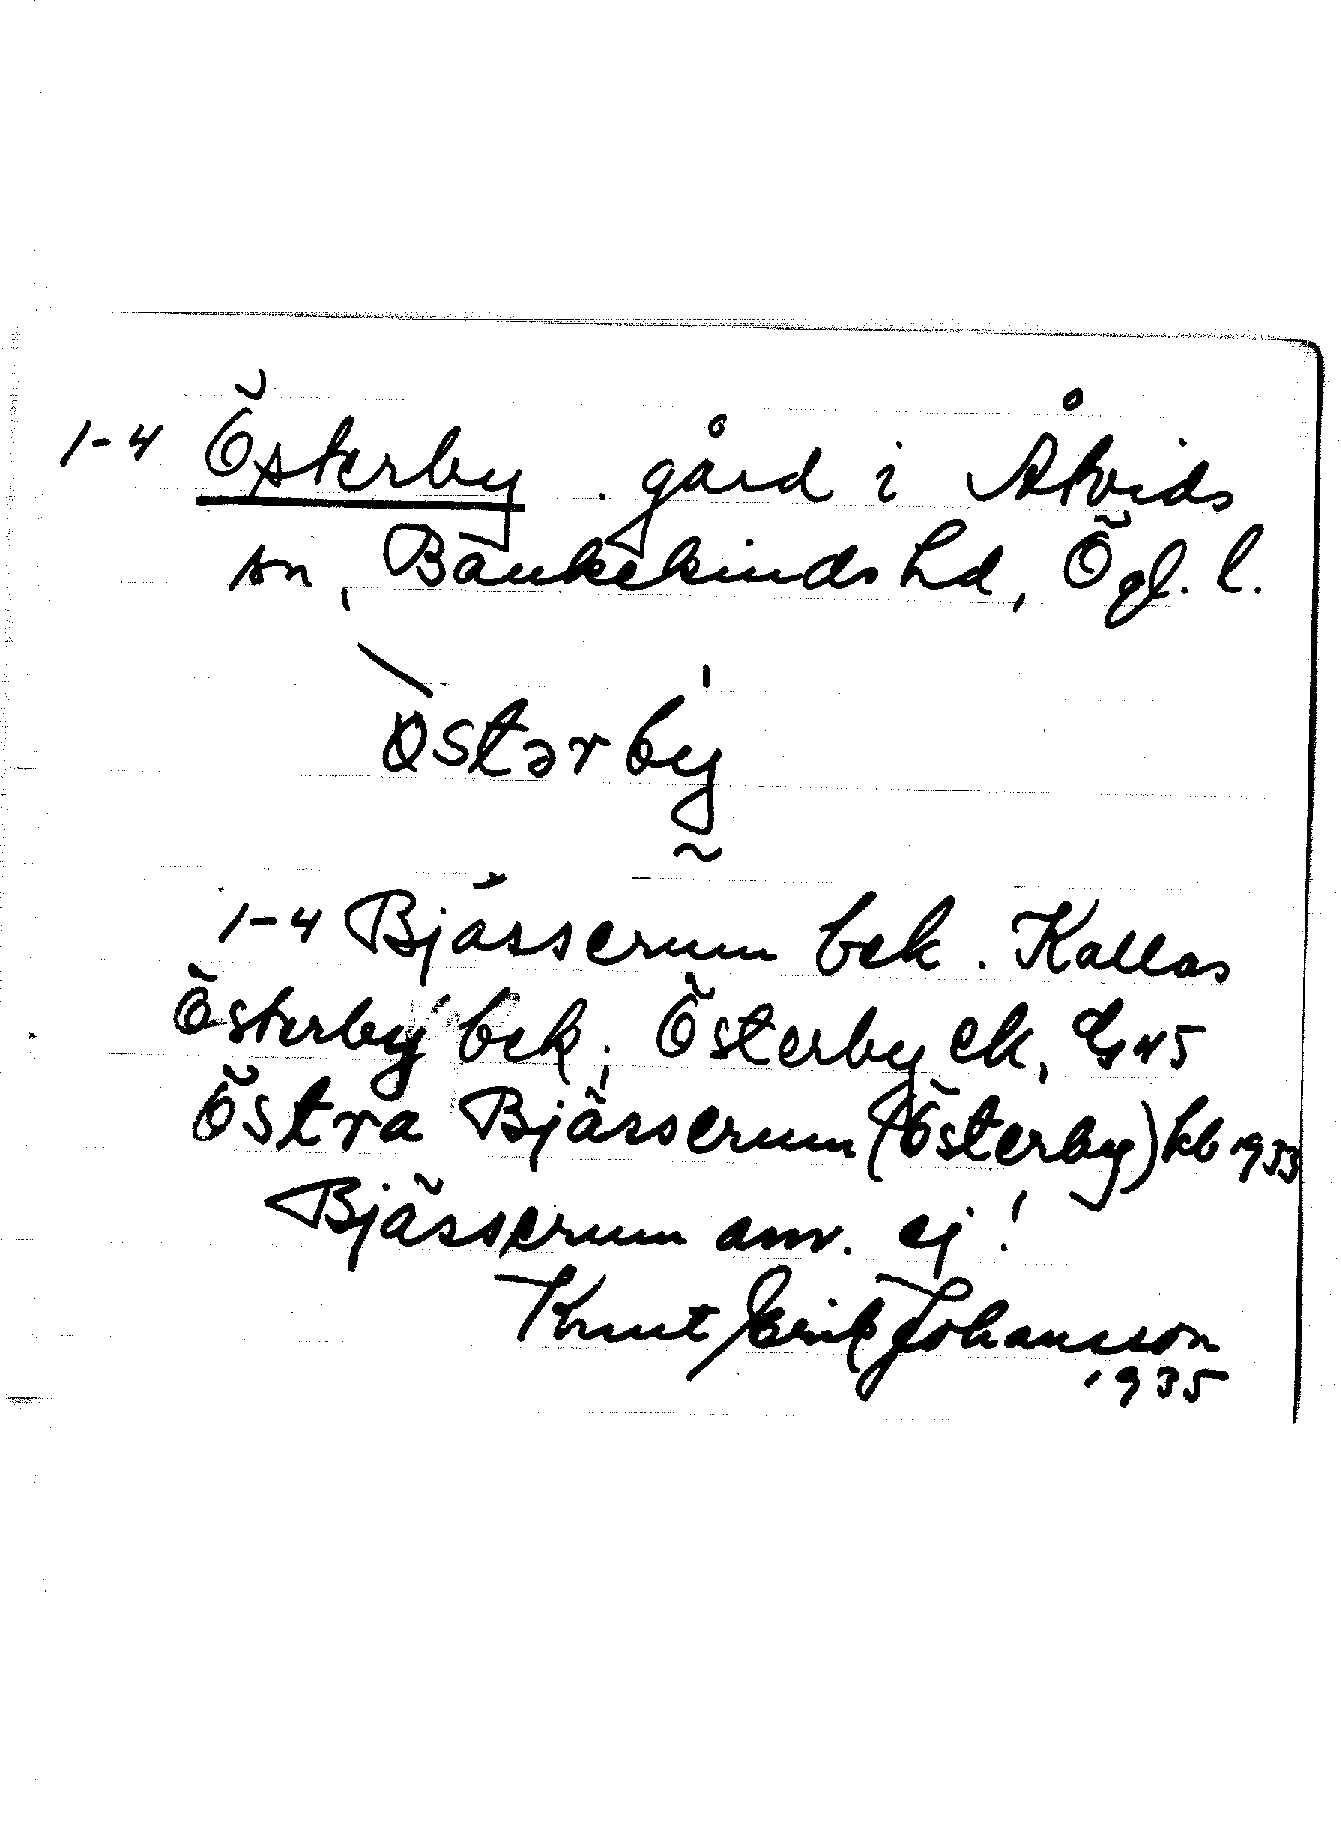 1-4 Österby gård i Åtvids
sn, Bankekinds hd, Ögl. l.
östərby
1-4 Bjässerum bek. Kallas
Österby bek; Österby ek, 45
Östra Bjässerum (Österby) kb 1933
Bjässerum anv. ej!
Knut Erik Johansson
1935